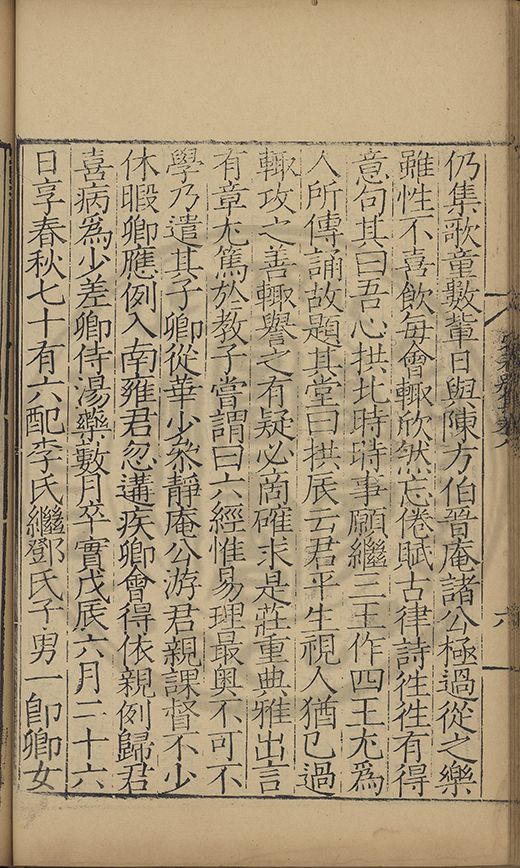 仍集歌童數輩日與陳方伯晉庵諸公極過從之樂
雖性不喜飲每會輒欣然忘倦賦古律詩徃徃有得
意句其曰吾心拱北時時事願繼三王作四王尤為
人所傳誦故題其堂曰拱辰云君平生視人猶己過
輙攻之善輙譽之有疑必商確求是莊重典雅出言
有章尤篤於教子嘗謂曰六經惟易理最奧不可不
學乃遣其子卿從華少叅靜庵公游君親課督不少
休暇卿應例入南雍君忽遘疾卿會得依親例歸君
喜病為少差卿侍湯藥數月卒實戊辰六月二十六
日享春秋七十有六配李氏繼鄧氏子男一即卿女
六